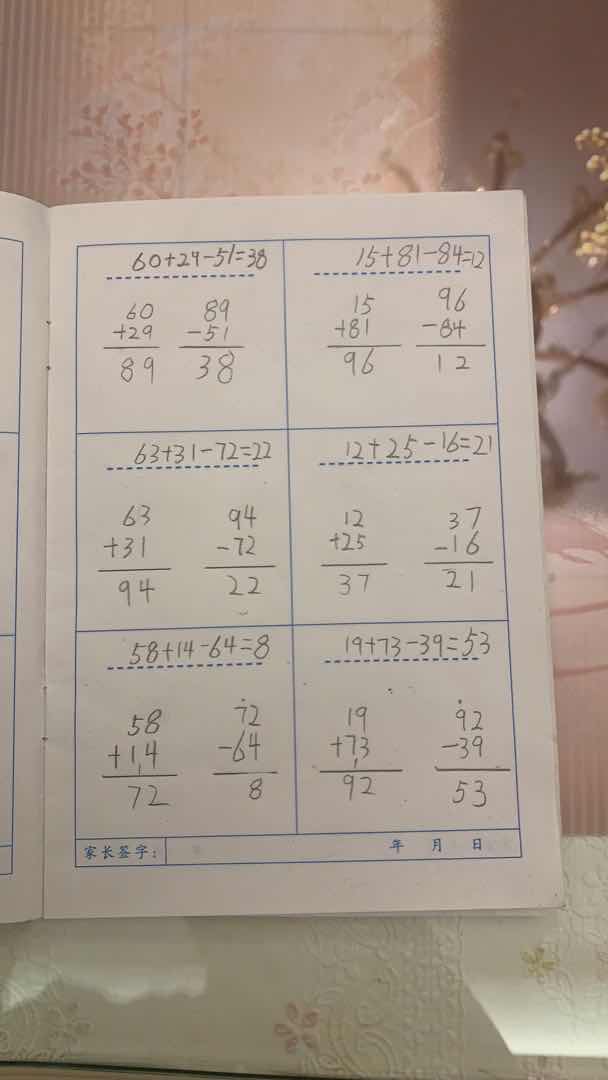 60+29-51=38
60 89
+29 -51
89 38
15+81-84=12
15 96
+81 -84
96 12
63+31-72=22
63 94
+31 -72
94 22
12+25-16=21
12 37
+25 -16
37 21
58+14-64=8
58 72
+14 -64
72 8
19+73-39=53
19 92
+73 -39
92 53
家长签字: 年 月 日